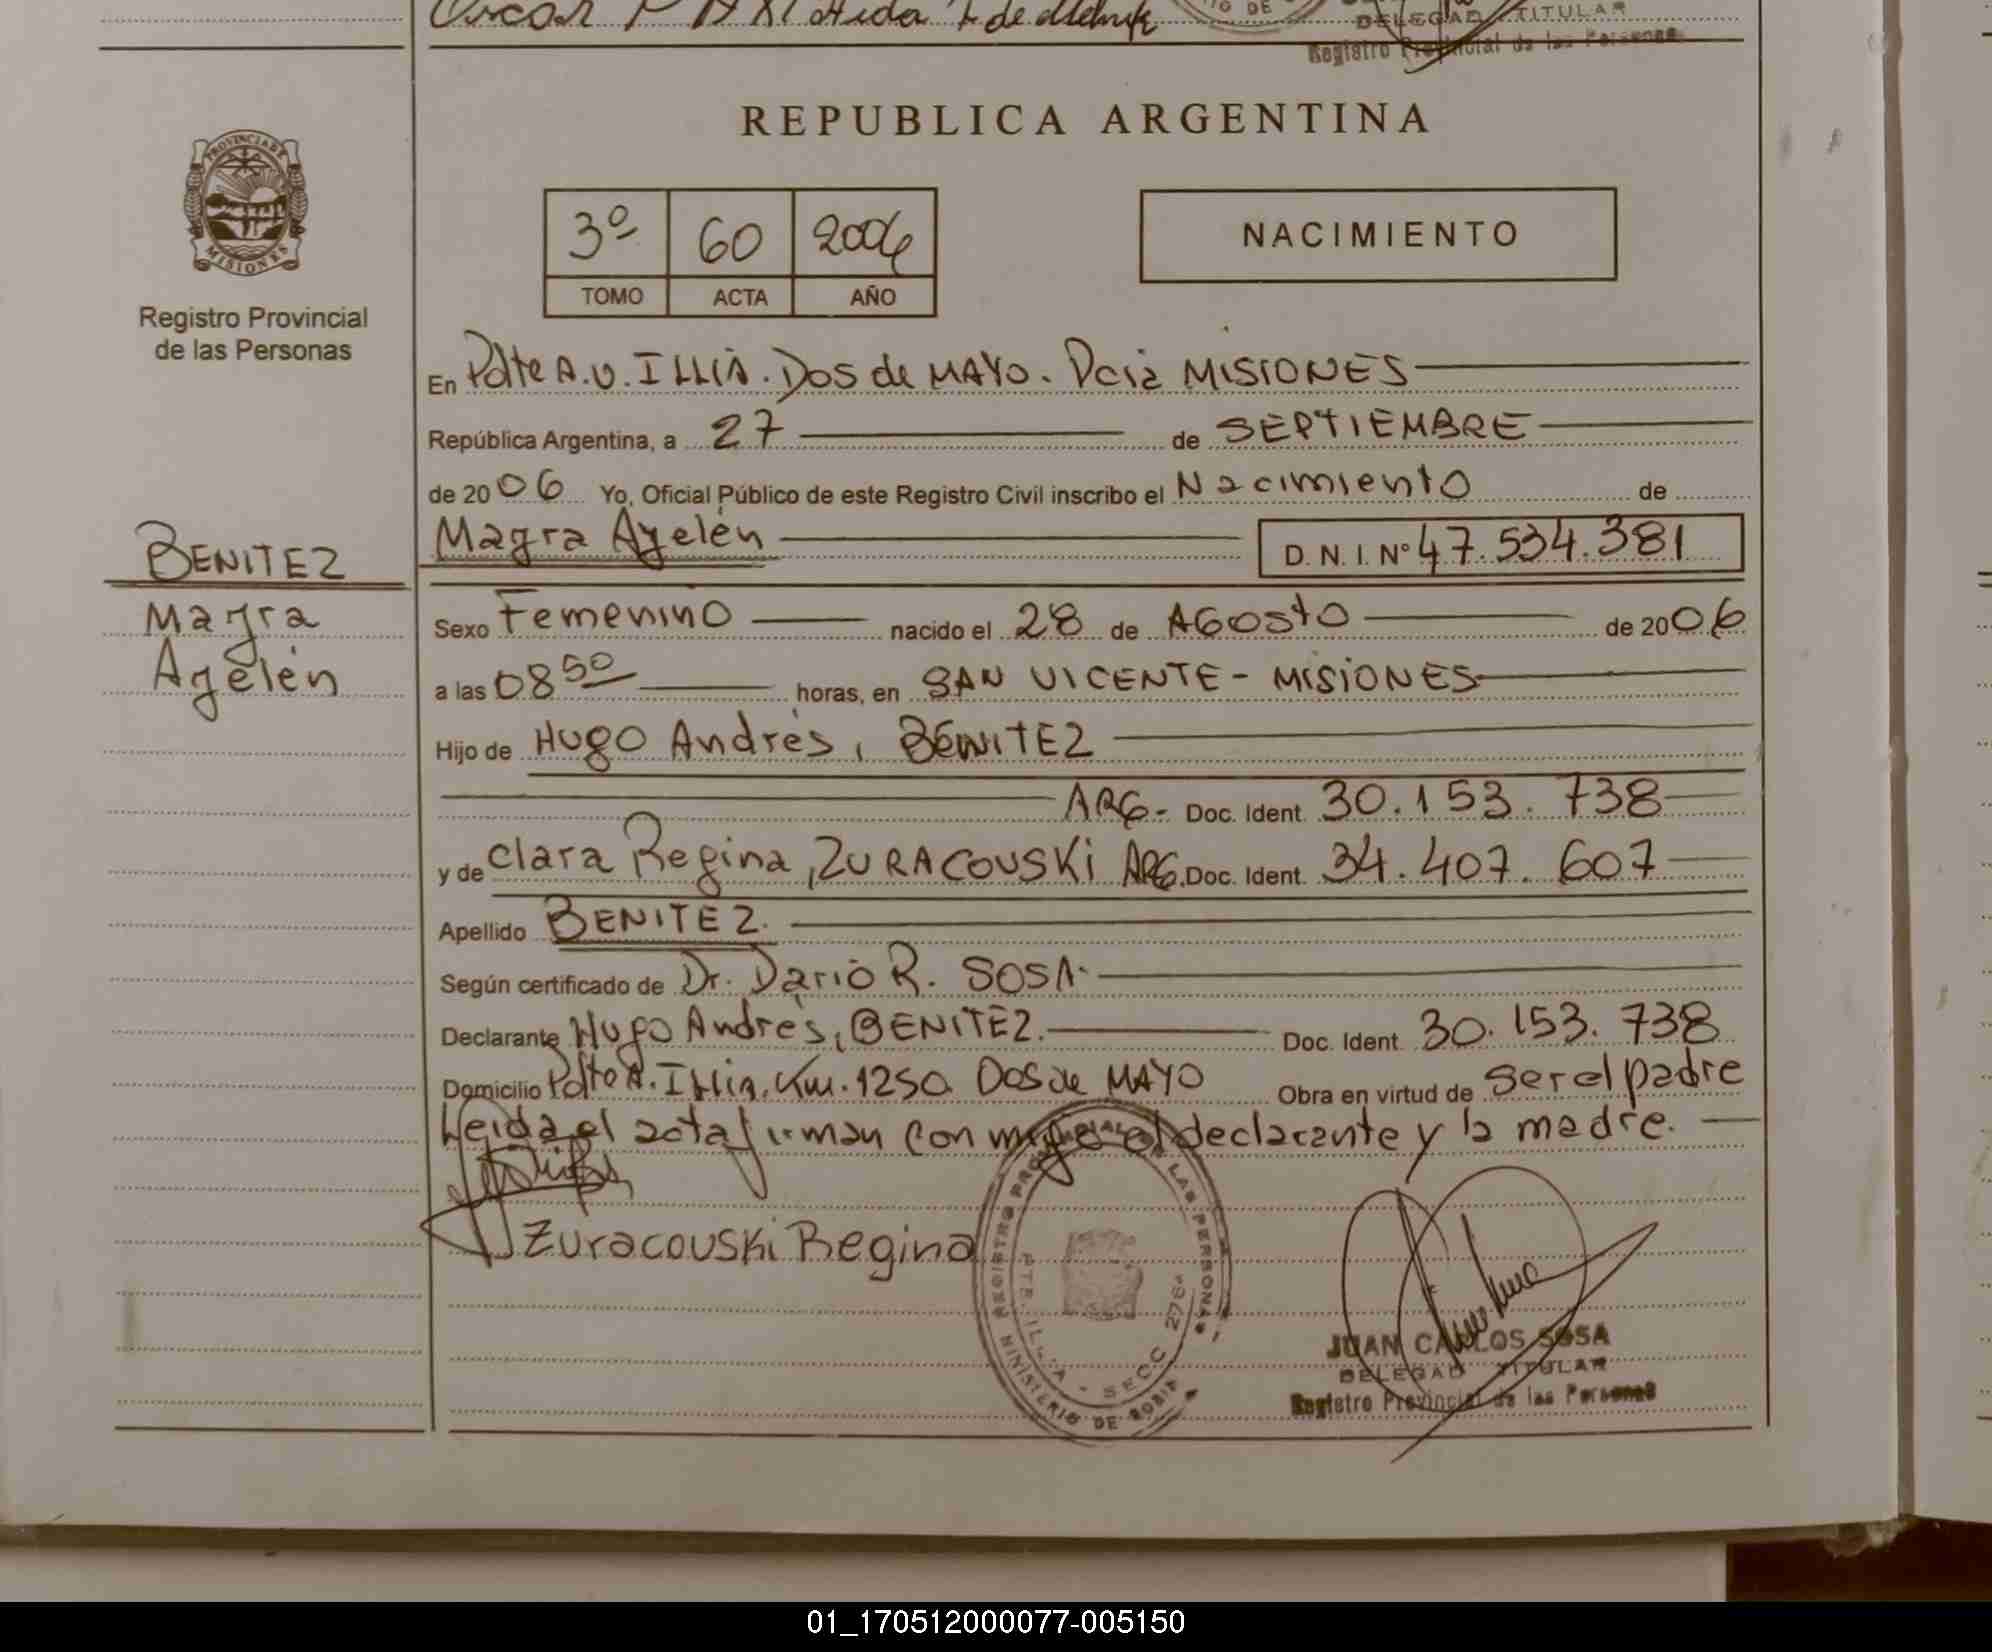 Oscar
DELEGAD TITULAR
Registro Provincial de las Personas
REPUBLICA ARGENTINA
PROVINCIA DE
MISIONES
Registro Provincial
de las Personas
3º 60 2006
TOMO ACTA AÑO
NACIMIENTO
En Pdte A.U. ILLIA. Dos de MAYO. Pcia MISIONES
República Argentina, a 27 de SEPTIEMBRE
de 2006 Yo, Oficial Público de este Registro Civil inscribo el Nacimiento de
Magra Ayelén D.N.I. Nº 47.534.381
BENITEZ
Magra
Ayelén
Sexo Femenino nacido el 28 de AGosto de 2006
a las 08 50 horas, en SAN VICENTE - MISIONES
Hijo de Hugo Andrés, BENITEZ
ARG- Doc. Ident. 30.153.738
y de Clara Regina, ZURACOUSKI ARG. Doc. Ident. 34.407.607
Apellido BENITEZ.
Según certificado de Dr. Dario R. SOSA.
Declarante Hugo Andrés, BENITEZ. Doc. Ident. 30.153.738
Domicilio Pdte A. Illia. Km. 1250. Dos de MAYO Obra en virtud de ser el padre
Leida el acta firman con migo el declarante y la madre.
Zuracouski Regina
REGISTRO PROVINCIAL DE LAS PERSONAS
MINISTERIO DE GOBIE
PTE. ILLIA - SECC 276
JUAN CARLOS SOSA
DELEGAD TITULAR
Registro Provincial de las Personas
01_170512000077-005150